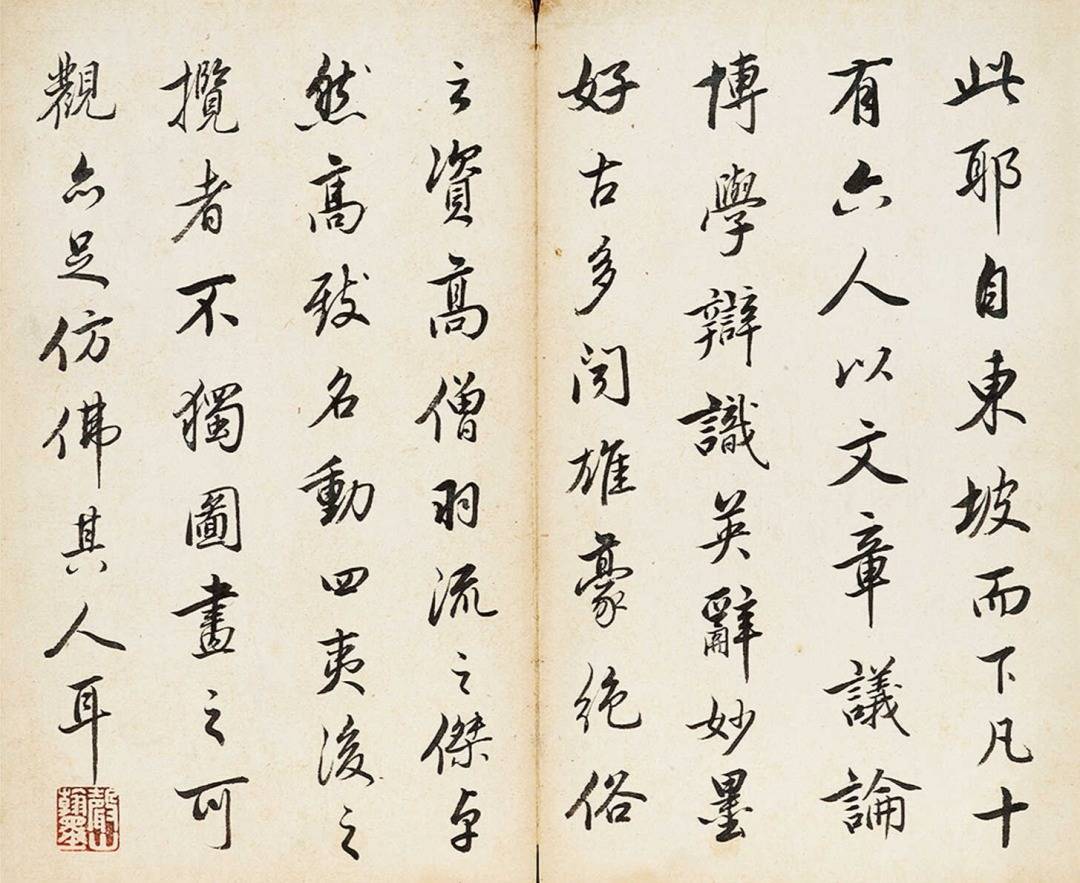 此耶自東坡而下凡十
有六人以文章議論
博學辯識英辭妙墨
好古多聞雄豪絕俗
之資高僧羽流之傑卓
然高致名動四夷後之
攬者不獨圖畫之可
觀亦足仿佛其人耳
磬山
翰墨